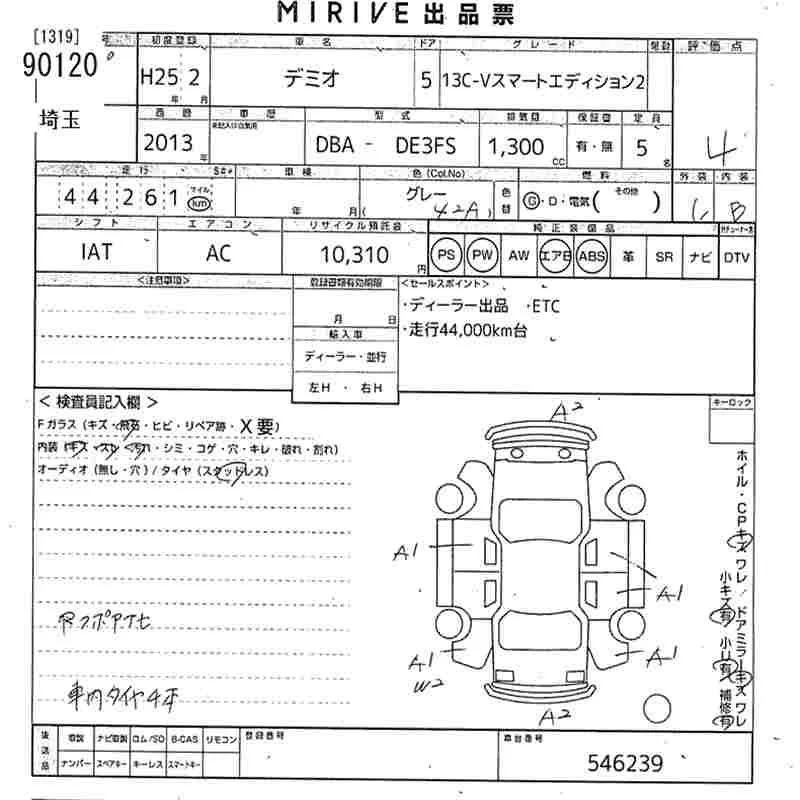 MIRIVE 出品票
[1319] 号 初度登録 車名 ドア グレード 評価点
90120 H25 2 デミオ 5 13C-Vスマートエディション2 4
年 月
埼玉 西暦 車歴 型式 排気量 保証書 定員
未記入は自家用
2013 年 DBA - DE3FS 1,300 CC 有・無 5 名
走行 車検 色(Col.No) 燃料 外装 内装
44261 マイル km 年 月( グレー 42A ) 色替 G・D・電気( その他 ) B
シフト エアコン リサイクル預託金 純正装備品
IAT AC 10,310 円 PS PW AW エアB ABS 革 SR ナビ DTV
<注意事項> 登録書類有効期限 <セールスポイント>
・ディーラー出品 ・ETC
月 日 ・走行44,000km台
輸入車
ディーラー・並行
左H ・ 右H
< 検査員記入欄 > キーロック
Fガラス (キズ・飛石・ヒビ・リペア跡・X要)
内装 (キズ・スレ・汚れ・シミ・コゲ・穴・キレ・破れ・割れ)
オーディオ (無し・穴) / タイヤ (スタッドレス)
A2
A1 A1
A1
A1 W2 A1
A2
ホイル・CPキズ ワレ / ドアミラーキズ ワレ
小キズ有 小U有 補修有
車内タイヤ4本
後送品 取説 ナビ取説 ロム/SD B-CAS リモコン 登録番号 車台番号
ナンバー スペアキー キーレス スマートキー 546239